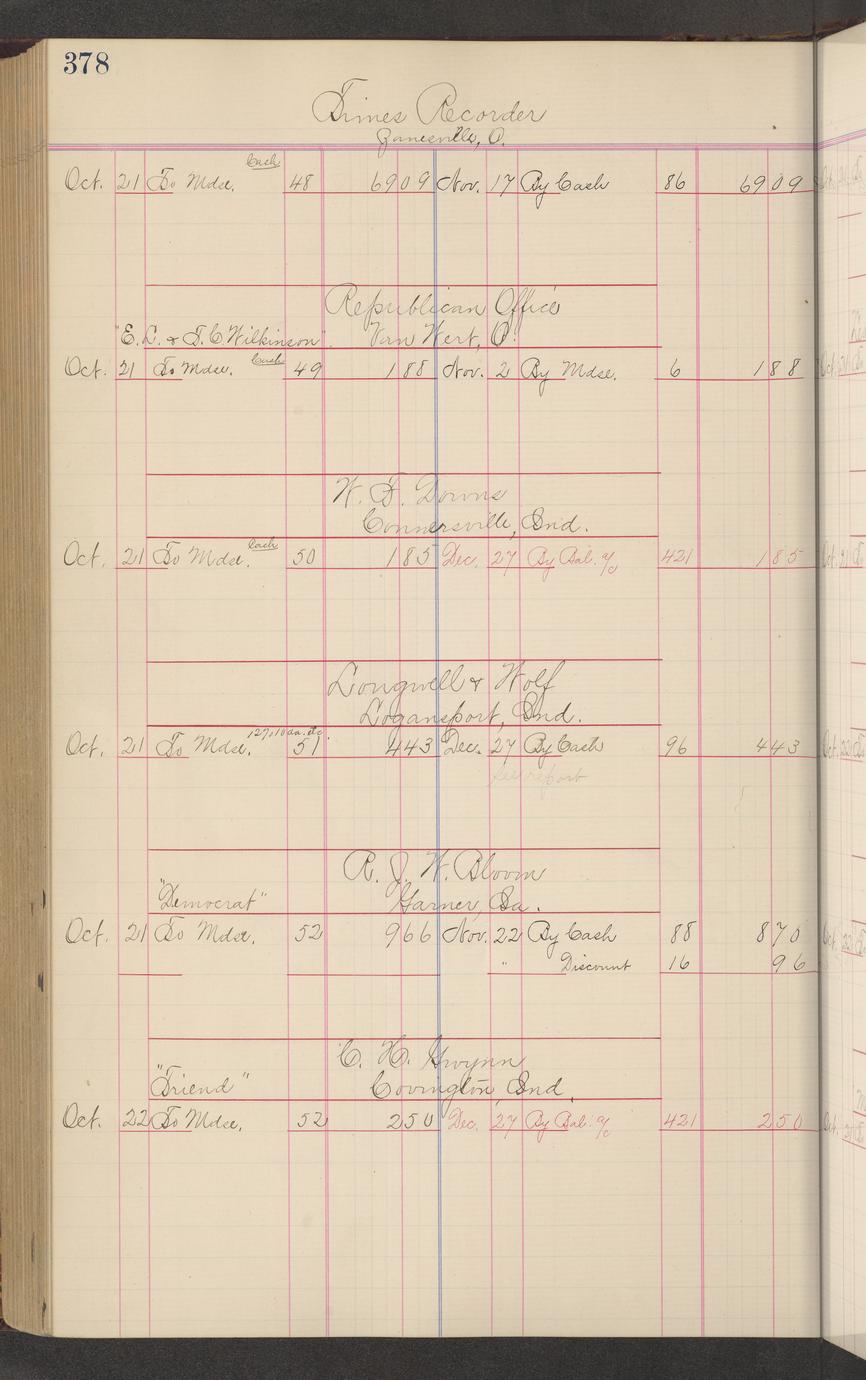 378
Times Recorder
Zanesville, O.
Cash
Oct. 21 To Mdse. 48 69 09 Nov. 17 By Cash 86 69 09
Republican Office
"E. L. & T. C Wilkinson". Van Wert, O.
Oct. 21 To Mdse. Cash 49 1 88 Nov. 2 By Mdse. 6 1 88
W. F. Downs
Connersville, Ind.
Cash
Oct. 21 To Mdse. 50 1 85 Dec. 27 By Bal. a/c 421 1 85
Longwell & Wolf
Logansport, Ind.
Oct. 21 To Mdse. 51 4 43 Dec. 27 By Cash 96 4 43
see report
R. J. W. Bloom
"Democrat" Garner, Ia.
Oct. 21 To Mdse. 52 9 66 Nov. 22 By Cash 88 8 70
" Discount 16 96
C. H. Gwynn
"Friend" Covington, Ind.
Oct. 22 To Mdse. 52 2 50 Dec. 27 By Bal. a/c 421 2 50